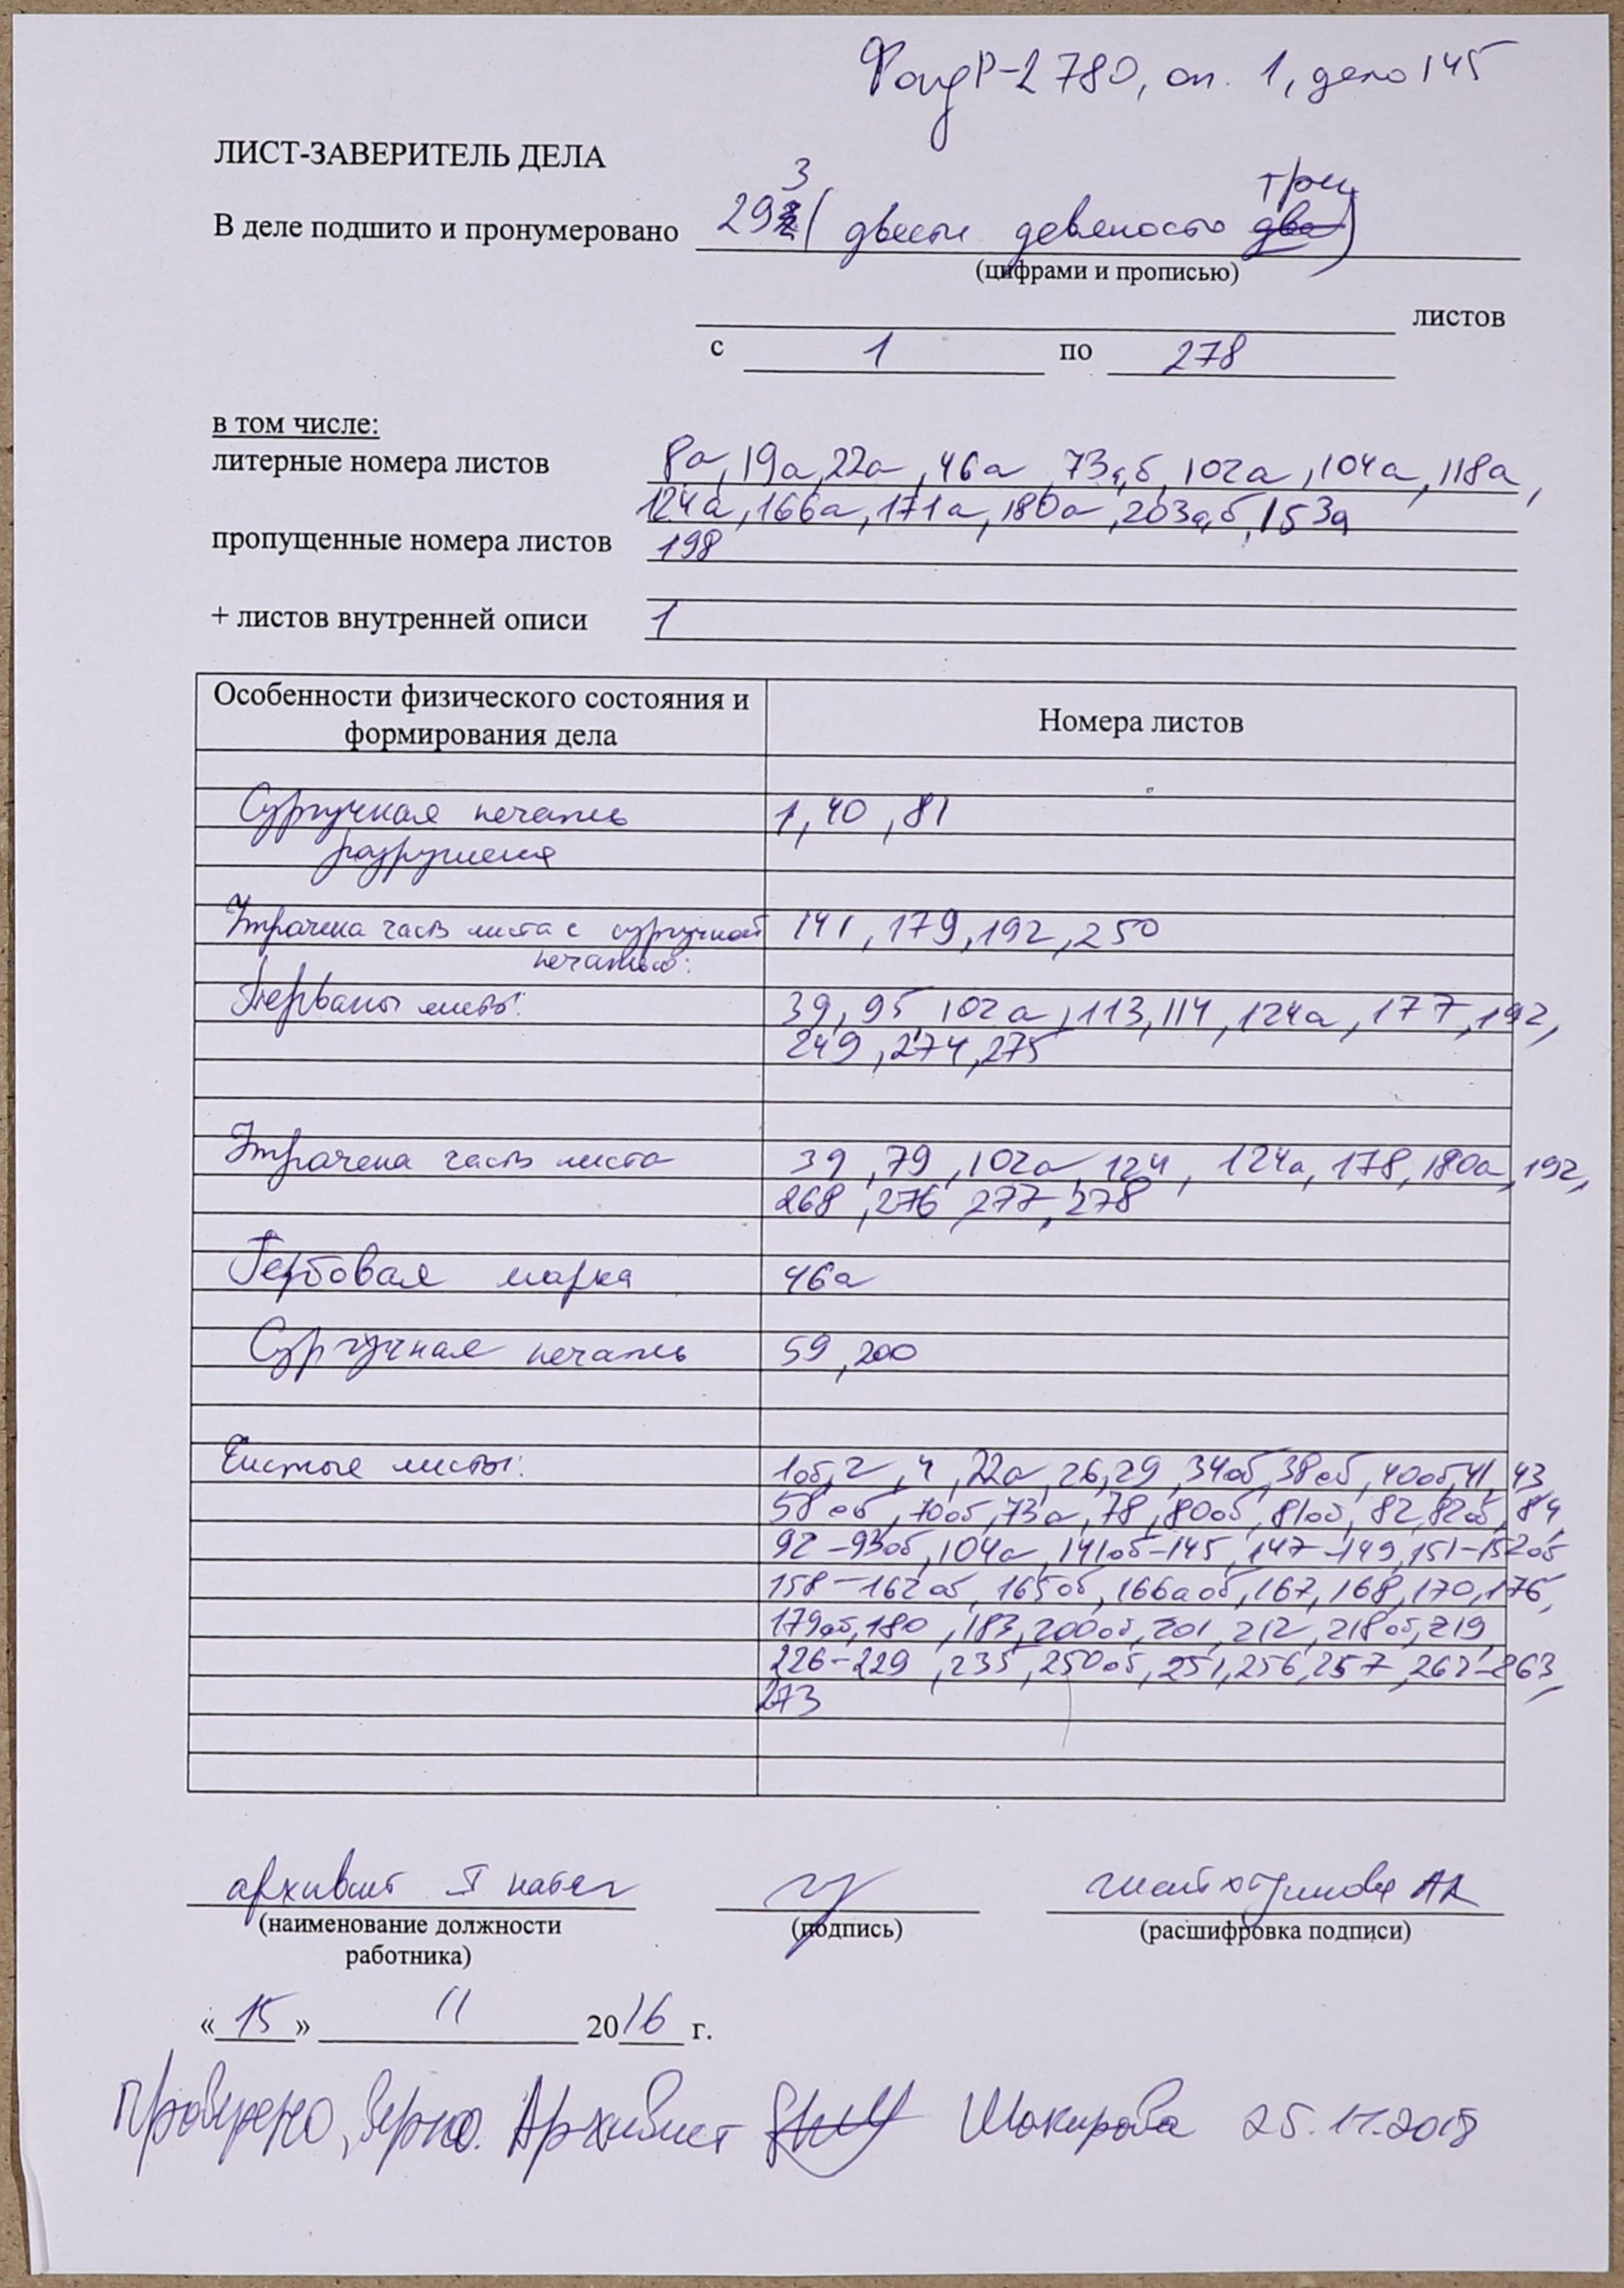 Фонд Р-2780, оп. 1, дело 145
ЛИСТ-ЗАВЕРИТЕЛЬ ДЕЛА
3 три
В деле подшито и пронумеровано 292 (двести девяносто два)
(цифрами и прописью)
листов
с 1 по 278
в том числе:
литерные номера листов 8а, 19а, 22а, 46а, 73а,б, 102а, 104а, 118а,
124а, 166а, 171а, 180а, 203а,б, 153а
пропущенные номера листов 198
+ листов внутренней описи 1
Особенности физического состояния и Номера листов
формирования дела
Сургучная печать 1, 40, 81
разрушена
Утрачена часть листа с сургучной 141, 179, 192, 250
печатью:
Прерваны листы: 39, 95, 102а, 113, 114, 124а, 177, 192,
249, 274, 275
Утрачена часть листа 39, 79, 102а, 124, 124а, 178, 180а, 192,
268, 276, 277, 278
Гербовая марка 46а
Сургучная печать 59, 200
Чистые листы: 1об, 2, 4, 22а, 26, 29, 34об, 38об, 40об, 41, 43,
58об, 70об, 73а, 78, 80об, 81об, 82, 82об, 84,
92-93об, 104а, 141об-145, 147-149, 151-152об
158-162об, 165об, 166аоб, 167, 168, 170, 176,
179об, 180, 183, 200об, 201, 212, 218об, 219,
226-229, 235, 250об, 251, 256, 257, 262-263,
273
архивист I катег
(наименование должности (подпись) (расшифровка подписи)
работника)
«15» 11 2016 г.
Проверено, верно. Архивист Шакирова 25.11.2018